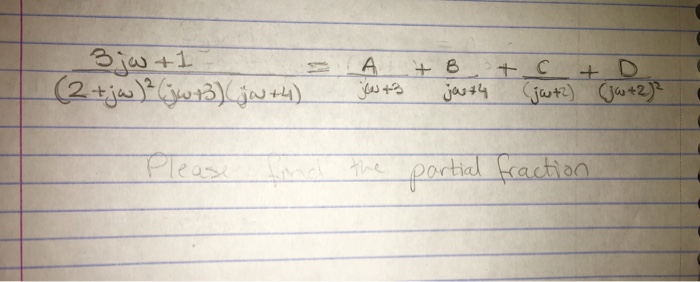 3jω+1 / (2+jω)²(jω+3)(jω+4) = A / jω+3 + B / jω+4 + C / (jω+2) + D / (jω+2)²
Please find the partial fraction